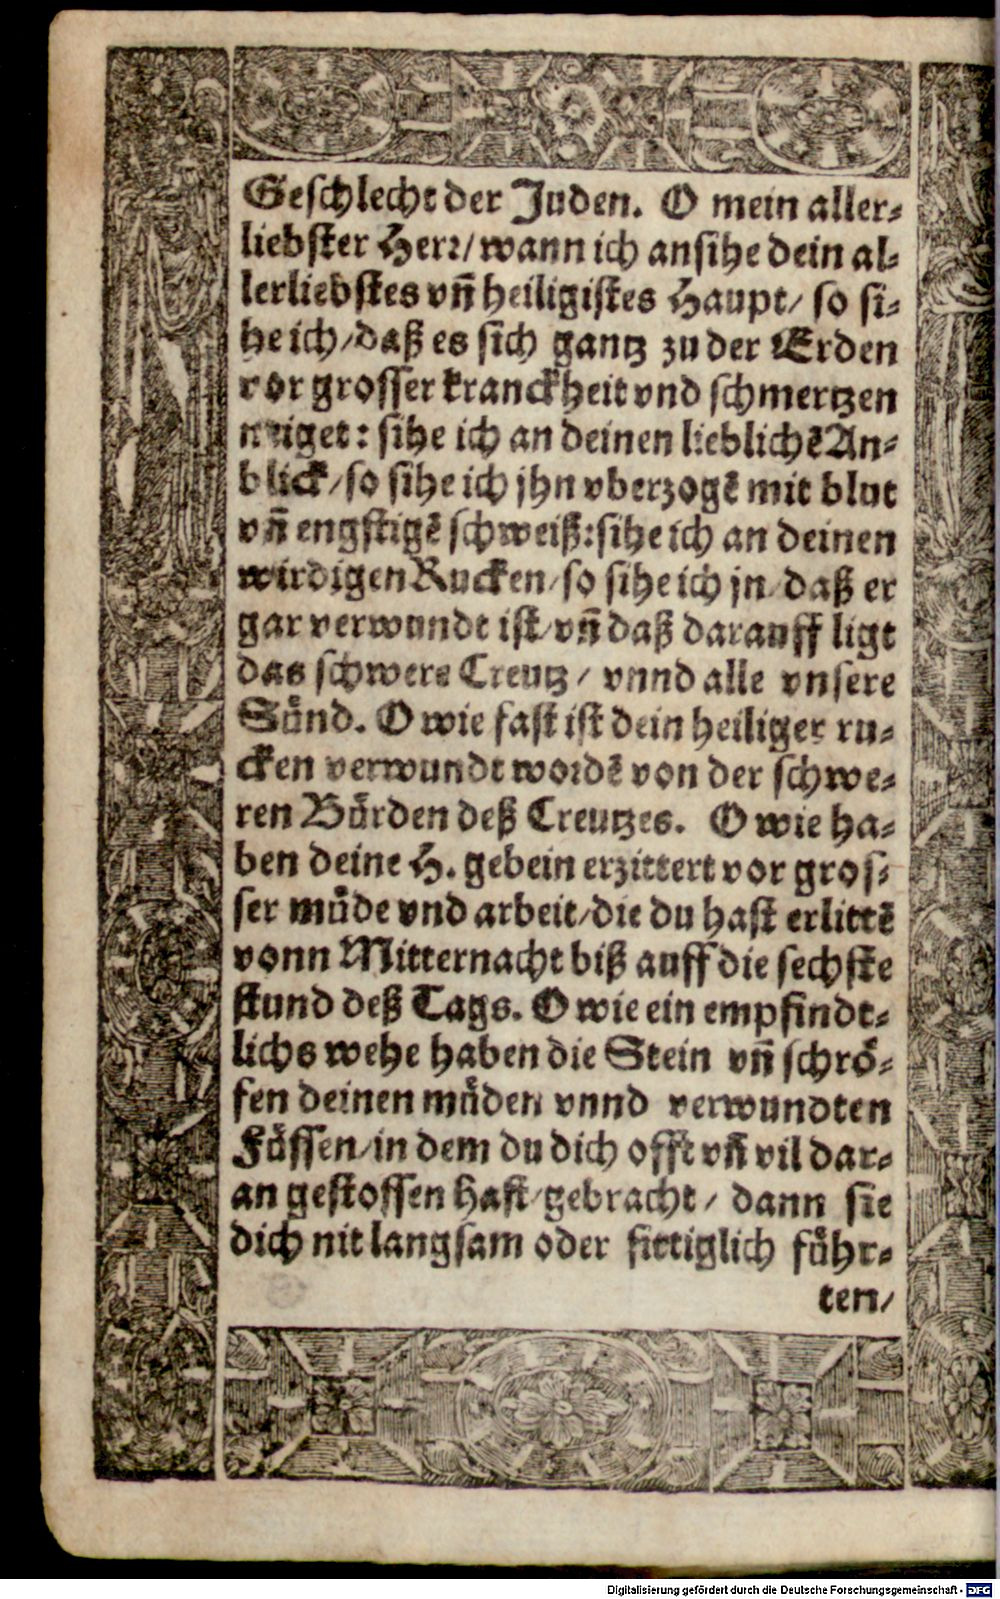 Geschlecht der Juden. O mein aller-
liebster Herr/wann ich ansihe dein al-
lerliebstes vn̄ heiligistes Haupt/ so si-
he ich/daß es sich gantz zu der Erden
vor grosser kranckheit vnd schmertzen
neiget: sihe ich an deinen lieblichē An-
blick/so sihe ich jhn vberzogē mit blut
vn̄ engstigē schweiß:sihe ich an deinen
wirdigen Rucken/so sihe ich jn/daß er
gar verwundt ist/vn̄ daß darauff ligt
das schwere Creutz/ vnnd alle vnsere
Sünd. O wie fast ist dein heiliger ru-
cken verwundt wordē von der schwe-
ren Bürden deß Creutzes. O wie ha-
ben deine H. gebein erzittert vor gros-
ser müde vnd arbeit/die du hast erlittē
vonn Mitternacht biß auff die sechste
stund deß Tags. O wie ein empfindt-
lichs wehe haben die Stein vn̄ schrö-
fen deinen müden vnnd verwundten
Füssen/in dem du dich offt vn̄ vil dar-
an gestossen hast/gebracht/ dann sie
dich nit langsam oder sittiglich führ-
ten/
Digitalisierung gefördert durch die Deutsche Forschungsgemeinschaft - DFG